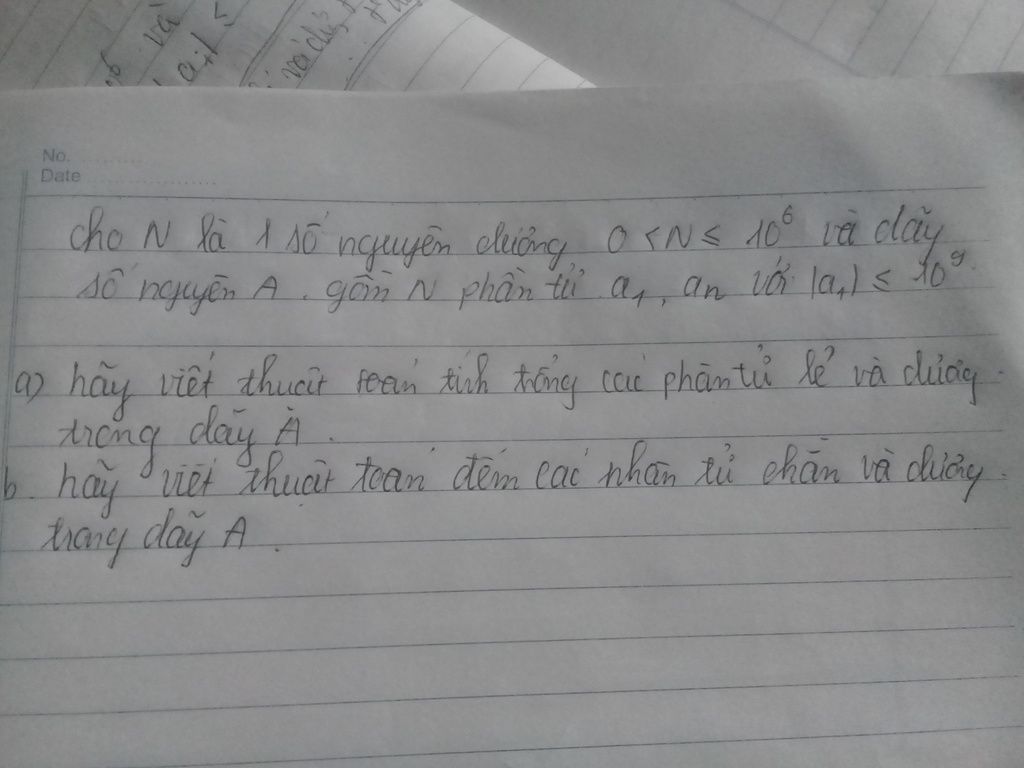 No.
Date
cho N là 1 số nguyên dương 0 < N ≤ 10⁶ và dãy
số nguyên A. gồm N phần tử a₁, an với |a₁| ≤ 10⁹.
a) hãy viết thuật toán tính tổng các phần tử lẻ và dương
trong dãy A.
b. hãy viết thuật toán đếm các nhân tử chẵn và dương
trong dãy A.